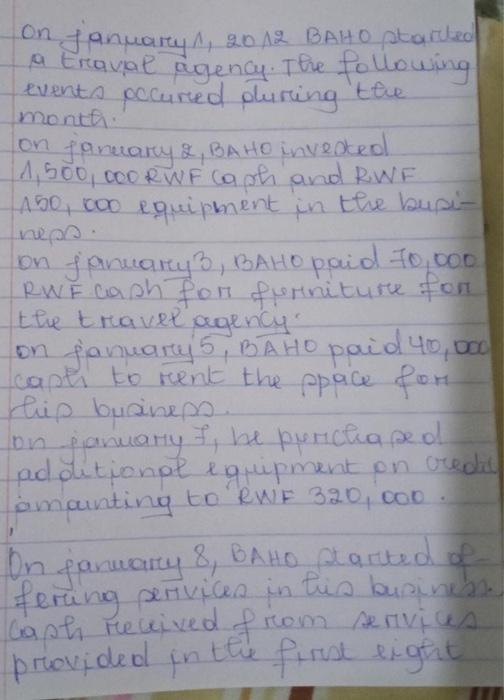 on january 1, 2012 BAHO started
a traval agency. The following
events occured during the
month.
on january 2, BAHO invested
1,500,000 RWF cash and RWF
150,000 equipment in the busi-
ness.
on january 3, BAHO paid 70,000
RWF cash for furniture for
the travel agency.
on january 5, BAHO paid 40,000
cash to rent the space for
his business.
on january 7, he purchased
additional equipment on credit
amounting to RWF 320,000.
On january 8, BAHO started of-
fering services in his business.
Cash received from services
provided in the first eight